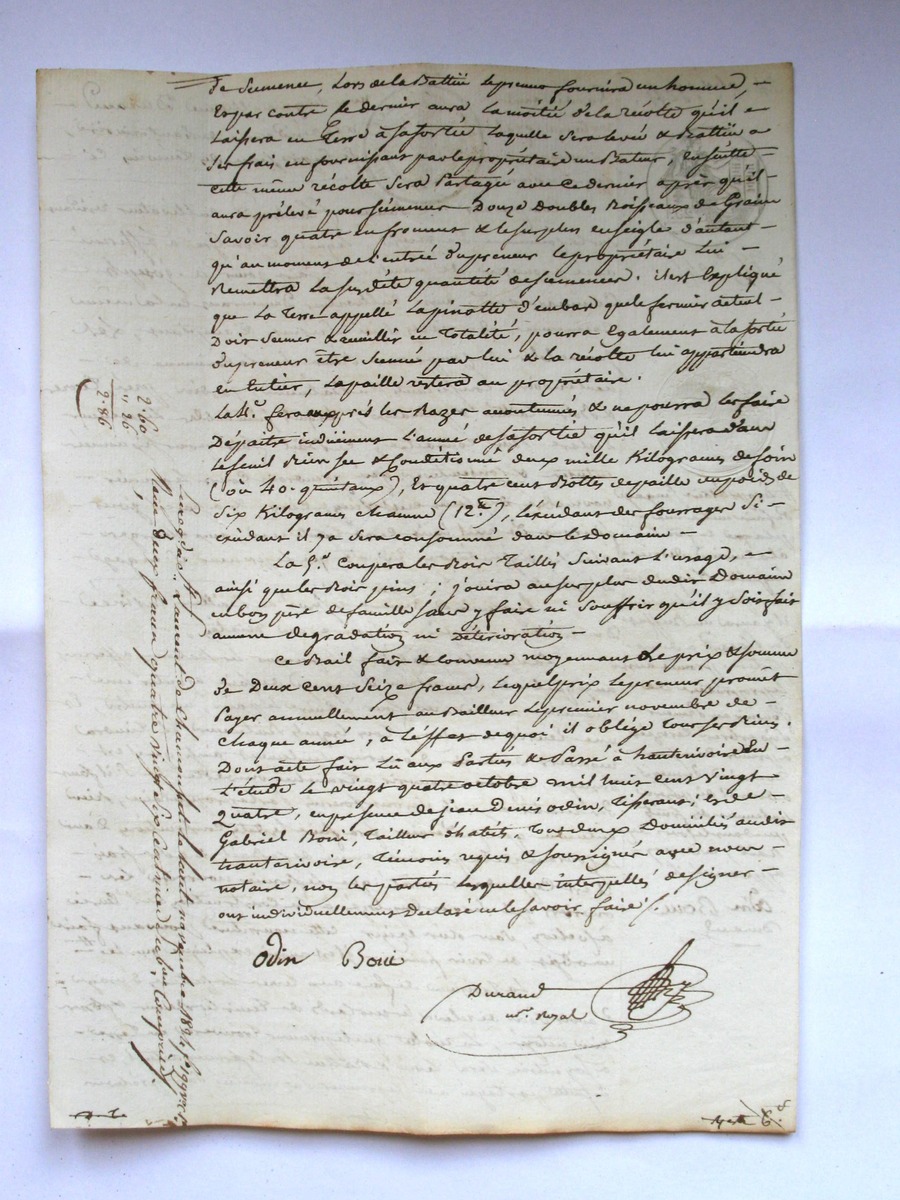 de Semence, Lors de la Battue le premier fournira un homme, –
Et par contre le dernier aura la moitié de la récolte qu'il –
Laissera en Terre à sa sortie Laquelle sera levée & Battue a
ses frais en fournissant par le propriétaire un Bateur, ensuitte
cette même récolte sera Partagée avec ce dernier après qu'il –
aura prélevé pour semences Douze Doubles Boisseaux de Grains
Savoir quatre en froment & le surplus en seigle d'autant –
qu'au moment de l'entrée du preneur le propriétaire Lui –
Remettra La susdite quantité de semences. il est Expliqué
que La Terre appellé Lapinatte d'embas que le fermier actuel –
Doit semer & cueillir en Totalité, pourra également à la sortie
du preneur être semée par lui & la récolte lui appartiendra
en Entier, La paille restera au propriétaire.
Le Pr. fera aux prés les Razes accoutumées & ne pourra les faire
Dépaitre induement L'année de sa sortie qu'il laissera dans
Le fenil Bien sec & Conditionné deux mille Kilogrames de foin
(ou 40. quintaux), Et quatre cent Bottes de paille du poids de
Six Kilogrames chacune (12 ), L'éxcédant des fourrages si
éxcédant il y a sera consommé dans le domaine –
Le Pr. Coupera les Bois Taillis suivant L'usage, –
ainsi que les Bois pins; jouira au surplus dudit Domaine
en bon père de famille sans y faire ni souffrir qu'il y soit fait
aucune dégradation ni Détérioration –
Ce Bail fait & convenu moyennant Le prix & somme
de Deux cent Seize francs, Lequel prix Le preneur promet
Payer annuellement au Bailleur Le premier novembre de –
chaque année, à L'effet de quoi il oblige Tous ses Biens.
Dont acte fait Lu aux Parties & Passé à hauterivoire En –
L'étude Le vingt quatre octobre mil huit cent vingt
Quatre, en présence de jean Denis odin, Tisserant; et de –
Gabriel Boui, Tailleur d'habits, Tous deux Domiciliés audit
hauterivoire, Témoins requis & soussignés avec nous –
notaire, non les parties Lesquelles interpellés de signer –
ont individuellement Déclaré ne le savoir faire /.
odin Boui
Durand
nre. Royal
2.60
" 26
2.86
Enregistré à St. Laurent de Chamousset le huit novembre 1824, f°
Reçu deux francs quatre vingt six centimes dixième Compris